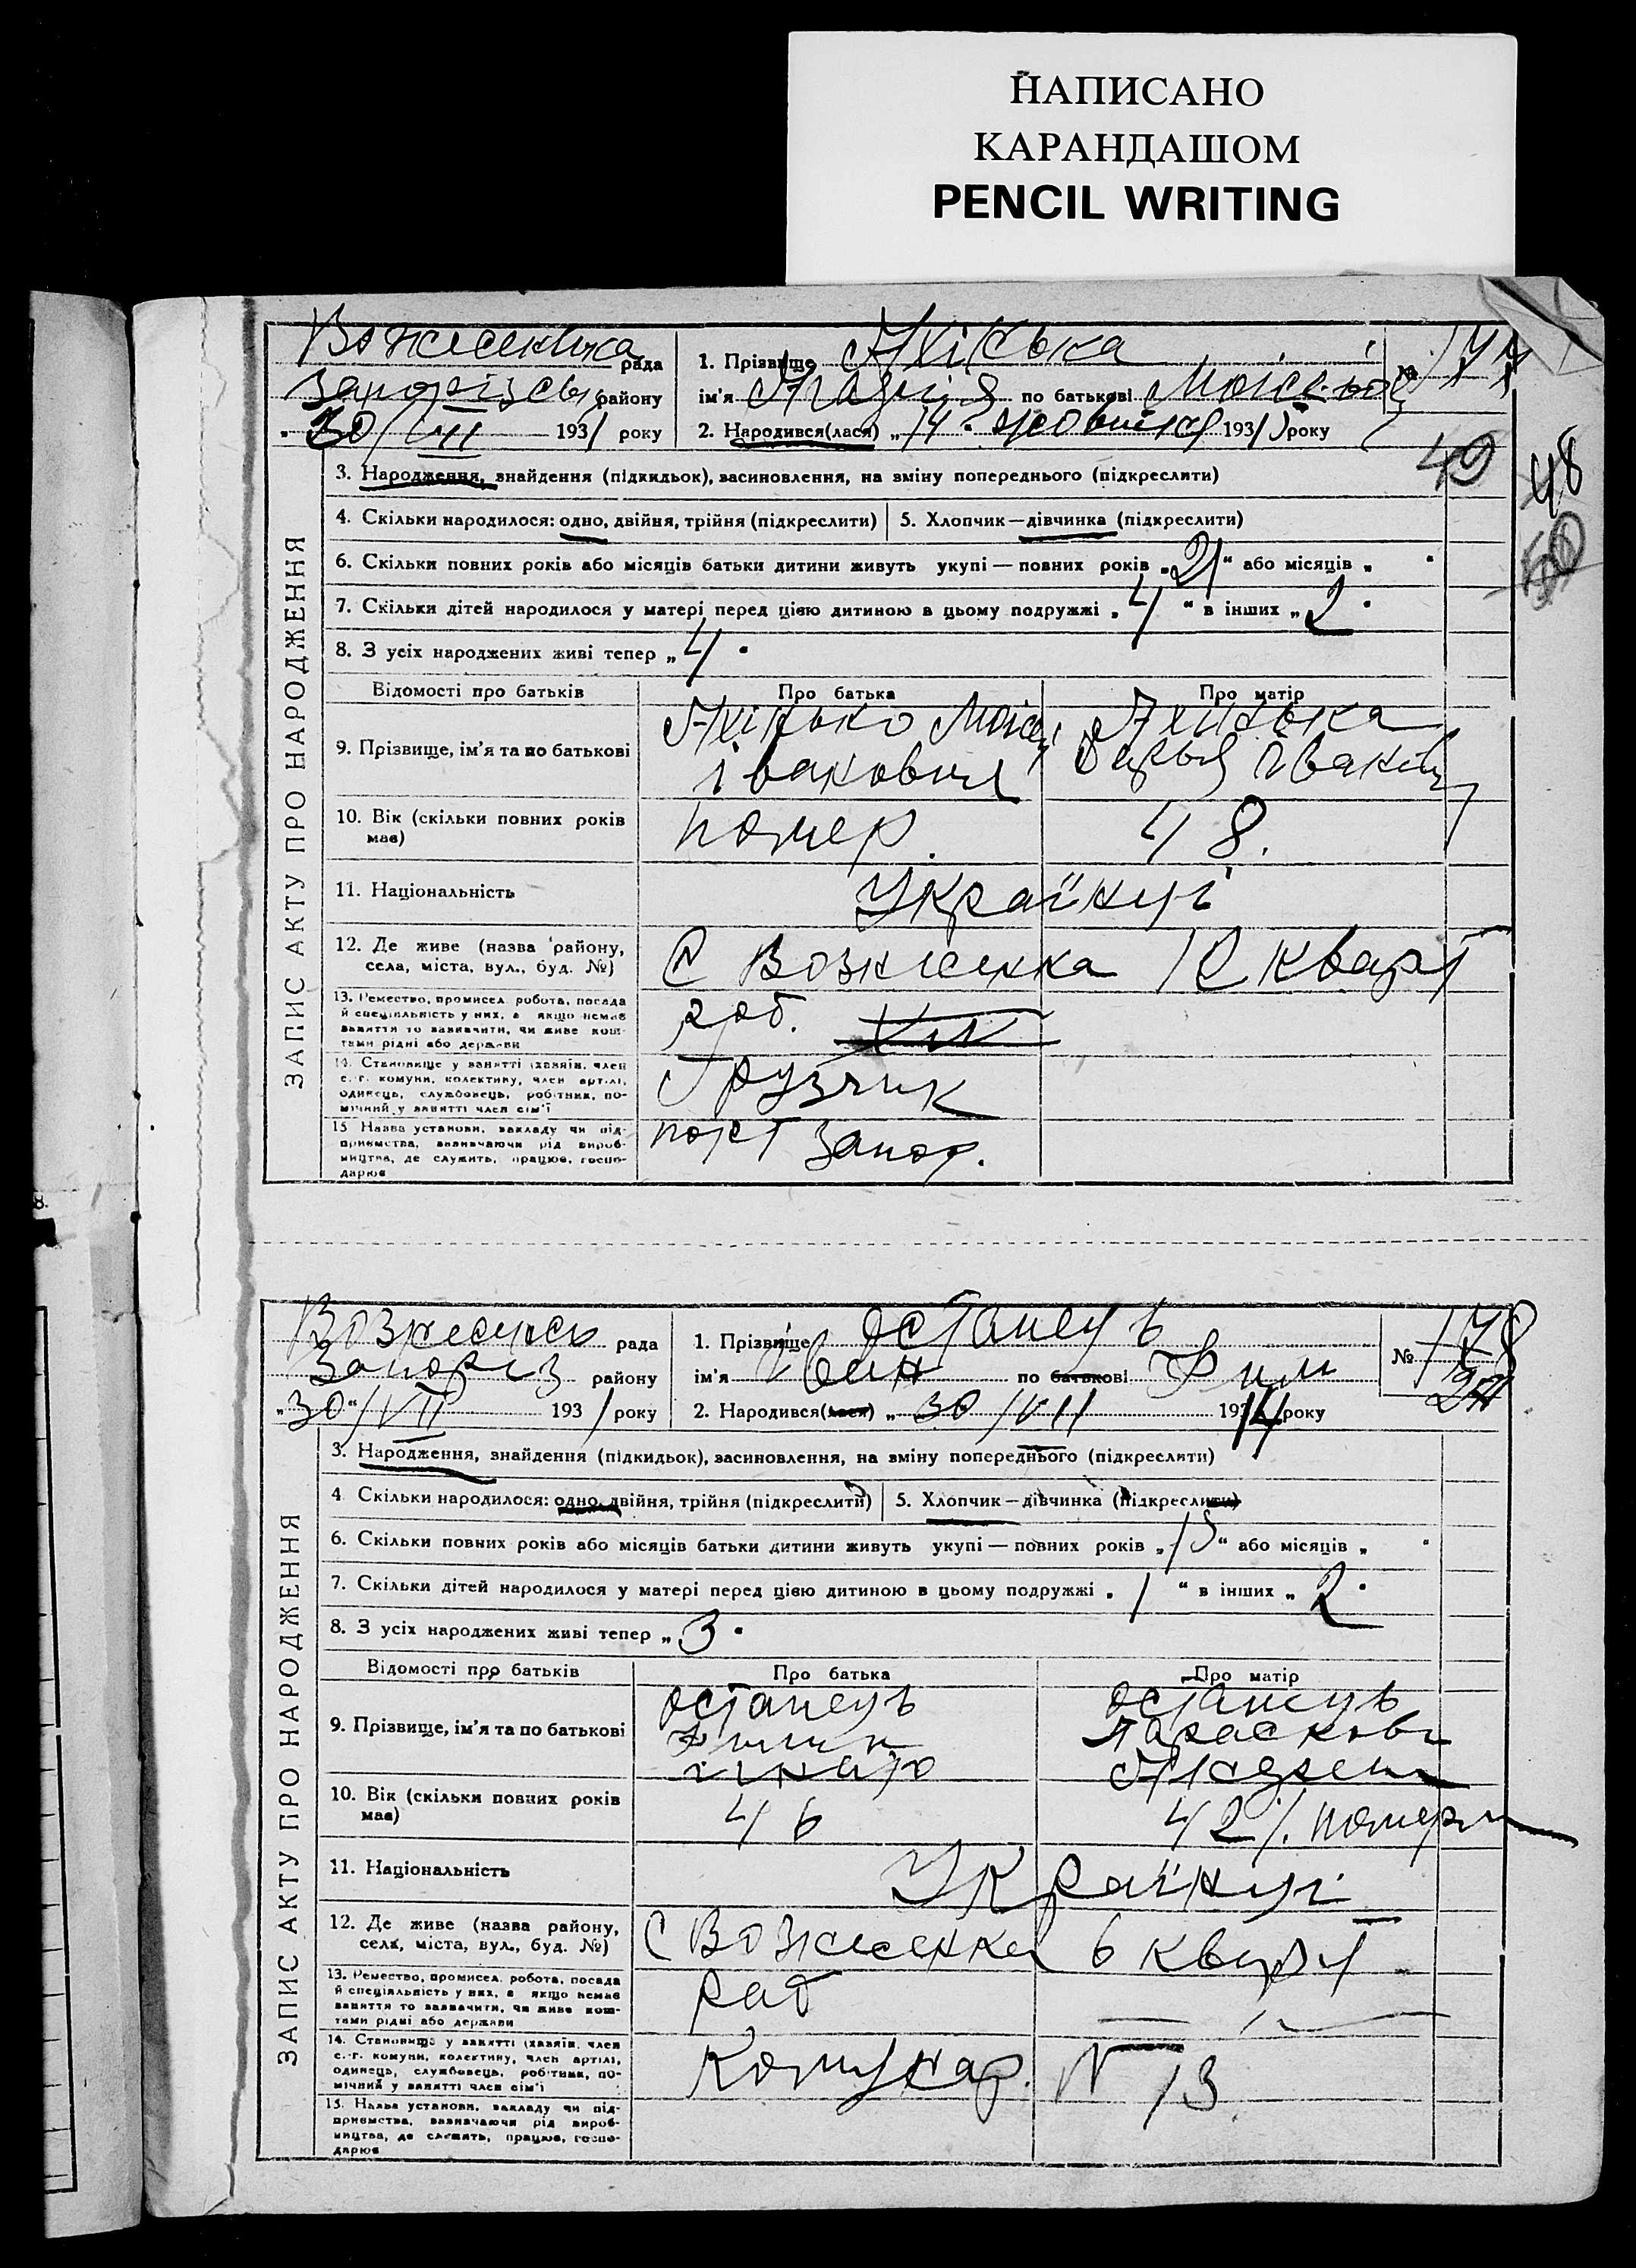 НАПИСАНО
КАРАНДАШОМ
PENCIL WRITING
рада
району
30/VII 1931 року
1. Прізвище
ім'я по батькові
2. Народився(лася) „14" жовтня 193 року
№ 177
49
48
50
ЗАПИС АКТУ ПРО НАРОДЖЕННЯ
3. Народження, знайдення (підкидьок), засиновлення, на зміну попереднього (підкреслити)
4. Скільки народилося: одно, двійня, трійня (підкреслити)
5. Хлопчик—дівчинка (підкреслити)
6. Скільки повних років або місяців батьки дитини живуть укупі — повних років „21" або місяців „ "
7. Скільки дітей народилося у матері перед цією дитиною в цьому подружжі „4" в інших „2"
8. З усіх народжених живі тепер „4"
Відомості про батьків
Про батька
Про матір
9. Прізвище, ім'я та по батькові
10. Вік (скільки повних років має)
помер.
48.
11. Національність
Українці
12. Де живе (назва району, села, міста, вул., буд. №)
С Вознесенка 12 кварт
13. Ремество, промисел, робота, посада й спеціяльність у них, а якщо немає заняття то зазначити, чи живе коштами рідні або держави
роб.
14. Становище у занятті (хазяїн, член с.-г. комуни, колективу, член артілі, одинець, службовець, робітник, помічний у занятті член сім'ї
Грузчик
15 Назва установи, закладу чи підприємства, визначаючи рід виробництва, де служить, працює, господарює
порт Запор.
Вознесенськ рада
Запоріз району
„30"/VII 1931 року
1. Прізвище Остапець
ім'я Іван по батькові Фили
2. Народився(лася) „30/VII 1914 року
№ 178
ЗАПИС АКТУ ПРО НАРОДЖЕННЯ
3. Народження, знайдення (підкидьок), засиновлення, на зміну попереднього (підкреслити)
4 Скільки народилося: одно, двійня, трійня (підкреслити)
5. Хлопчик—дівчинка (підкреслити)
6. Скільки повних років або місяців батьки дитини живуть укупі — повних років „15" або місяців „ "
7. Скільки дітей народилося у матері перед цією дитиною в цьому подружжі „1" в інших „2"
8. З усіх народжених живі тепер „3"
Відомості про батьків
Про батька
Про матір
9. Прізвище, ім'я та по батькові
Остапець
Остапець
Парасковi
10. Вік (скільки повних років має)
46
42/. померл
11. Національність
Українці
12. Де живе (назва району, села, міста, вул., буд. №)
С Вознесенка 6 кварт
13. Ремество, промисел, робота, посада й спеціяльність у них, а якщо немає заняття то зазначити, чи живе коштами рідні або держави
Раб
14. Становище у занятті (хазяїн, член с.-г. комуни, колективу, член артілі, одинець, службовець, робітник, помічний у занятті член сім'ї
Комунар. N 13
15. Назва установи, закладу чи підприємства, визначаючи рід виробництва, де служить, працює, господарює